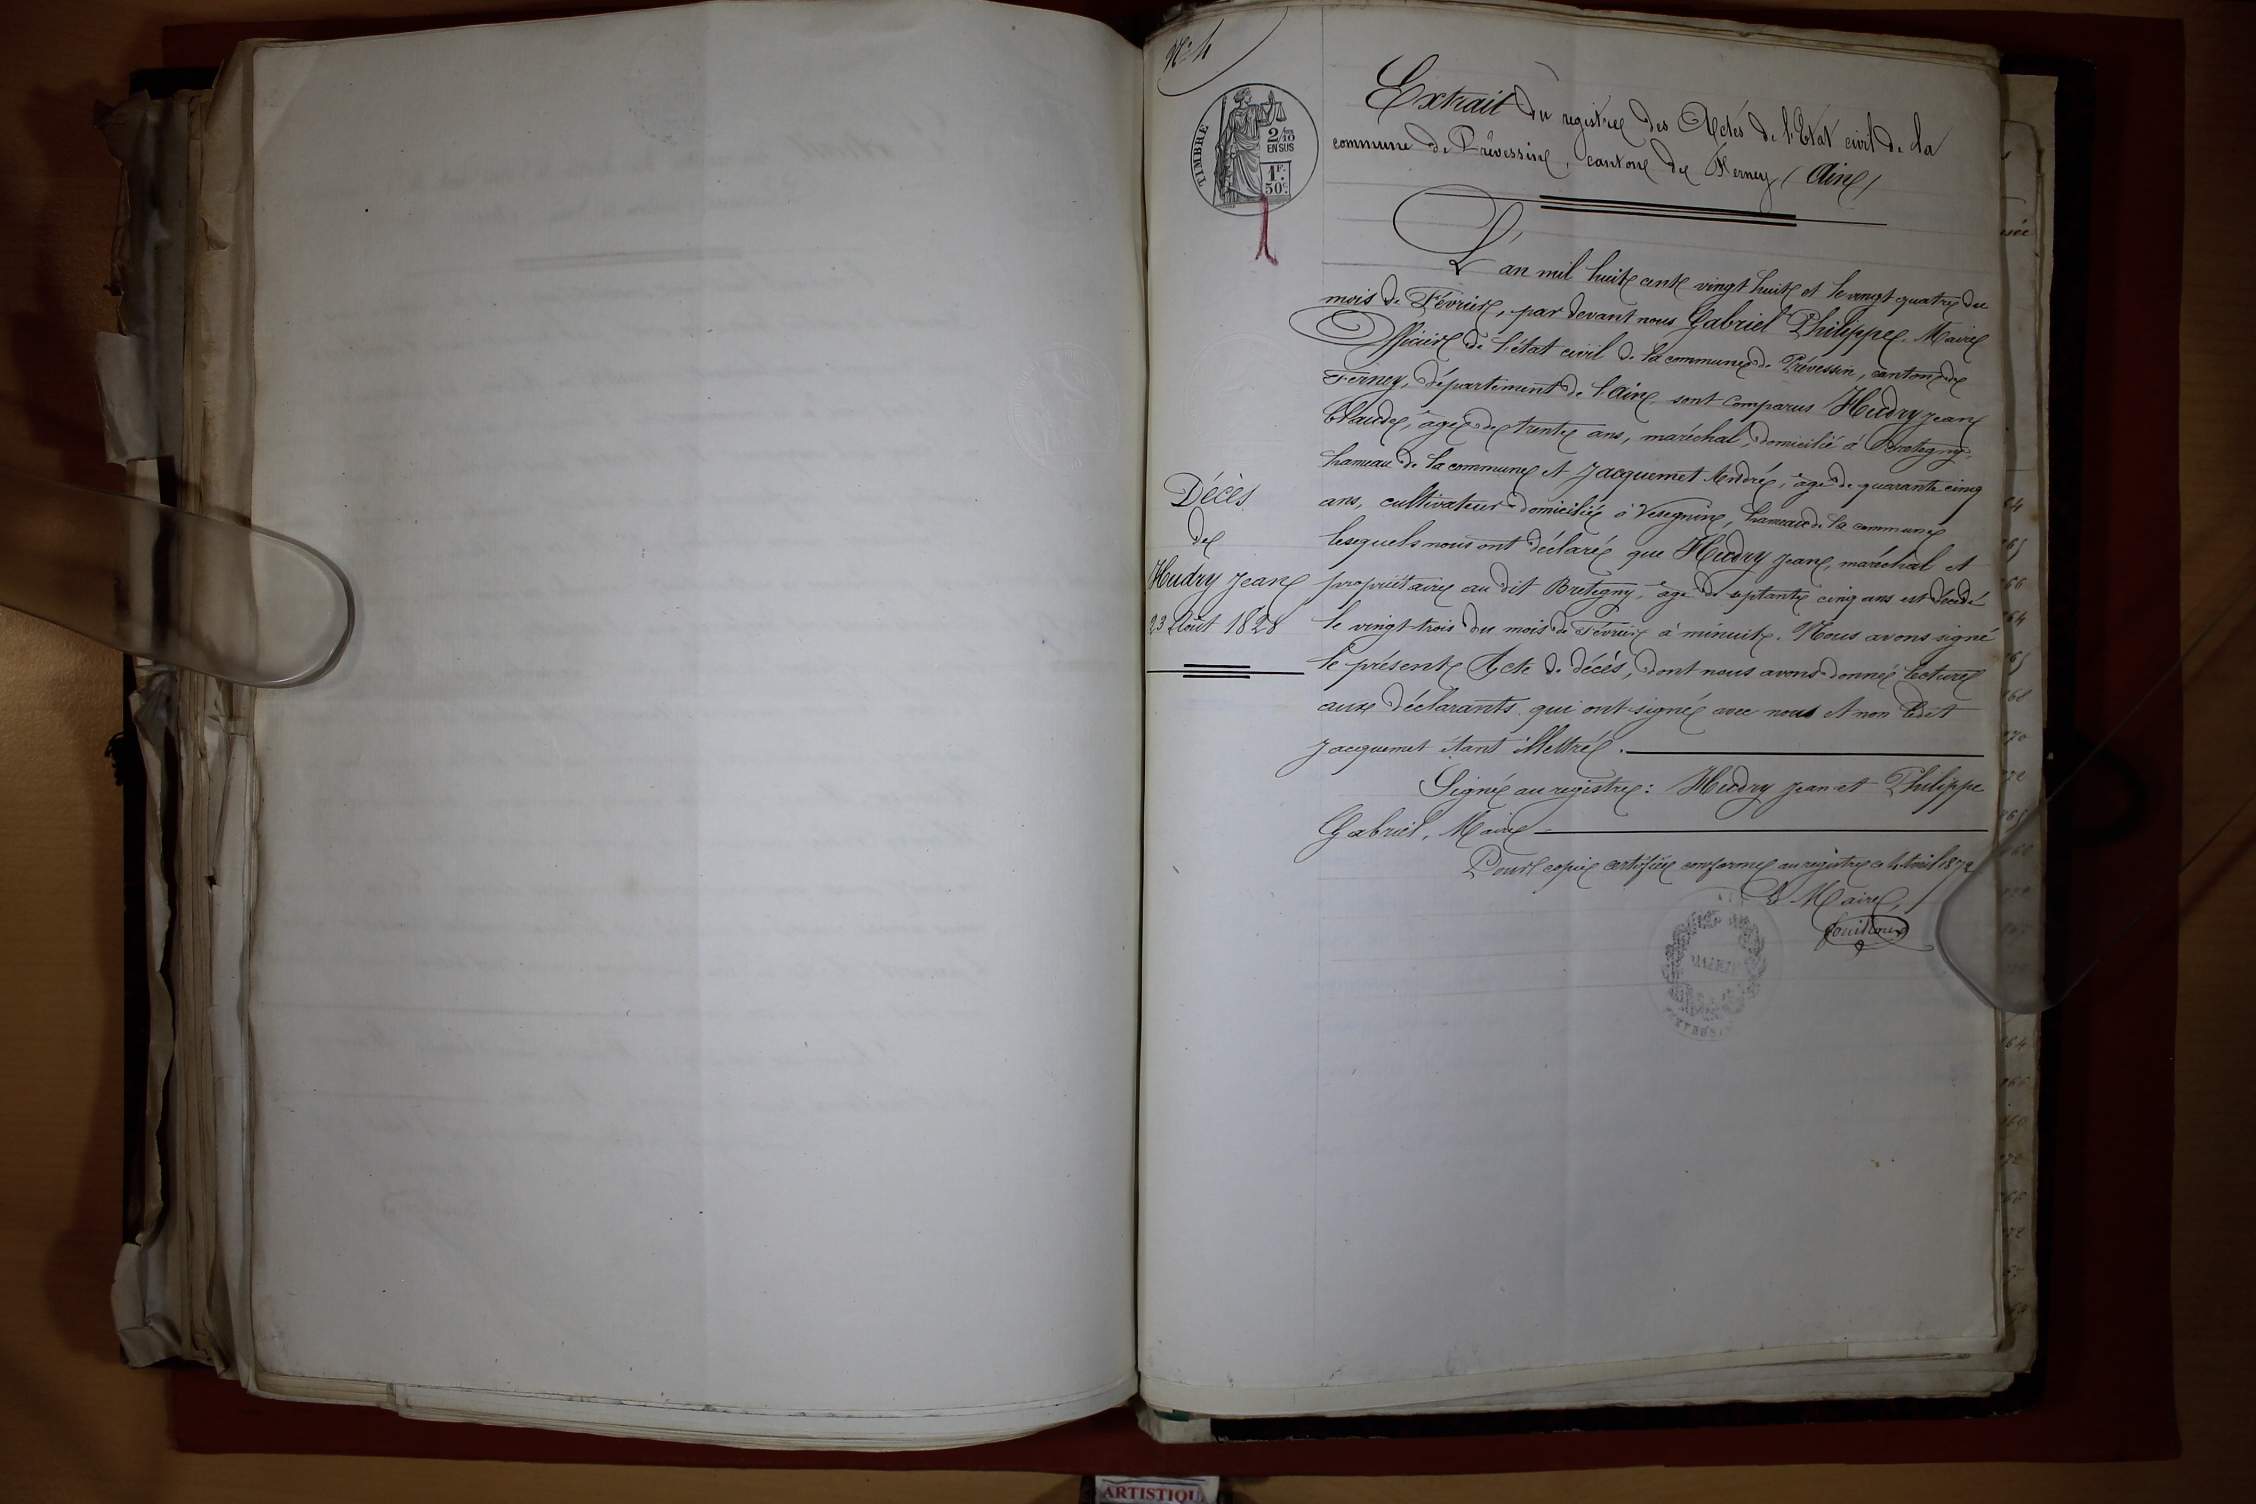 N° 4
TIMBRE
2/10
EN SUS
1F.
50c.
Extrait du registre des Actes de l'Etat civil de la
commune de Prévessin, canton de Ferney (Ain)
L'an mil huit cent vingt huit et le vingt quatre du
mois de Février, par devant nous Gabriel Philippe, Maire
Officier de l'état civil de la commune de Prévessin, canton de
Ferney, département de l'Ain, sont comparus Hudry Jean
Claude, âgé de trente ans, maréchal, domicilié à Bretigny,
hameau de la commune et Jacquemet André, âgé de quarante cinq
ans, cultivateur domicilié à Vesegnin, hameau de la commune
lesquels nous ont déclaré que Hudry Jean, maréchal et
propriétaire au dit Bretigny, âgé de septante cinq ans est décédé
le vingt trois du mois de Février à minuit. Nous avons signé
le présent Acte de décès, dont nous avons donné lecture
aux déclarants qui ont signé avec nous et non ledit
Jacquemet étant illettré.
Signé au registre: Hudry Jean et Philippe
Gabriel, Maire
Pour copie certifiée conforme au registre ce 4 Avril 1872
Le Maire,
Décès
de
Hudry Jean
23 Août 1828
MAIRIE
ARTISTIQU